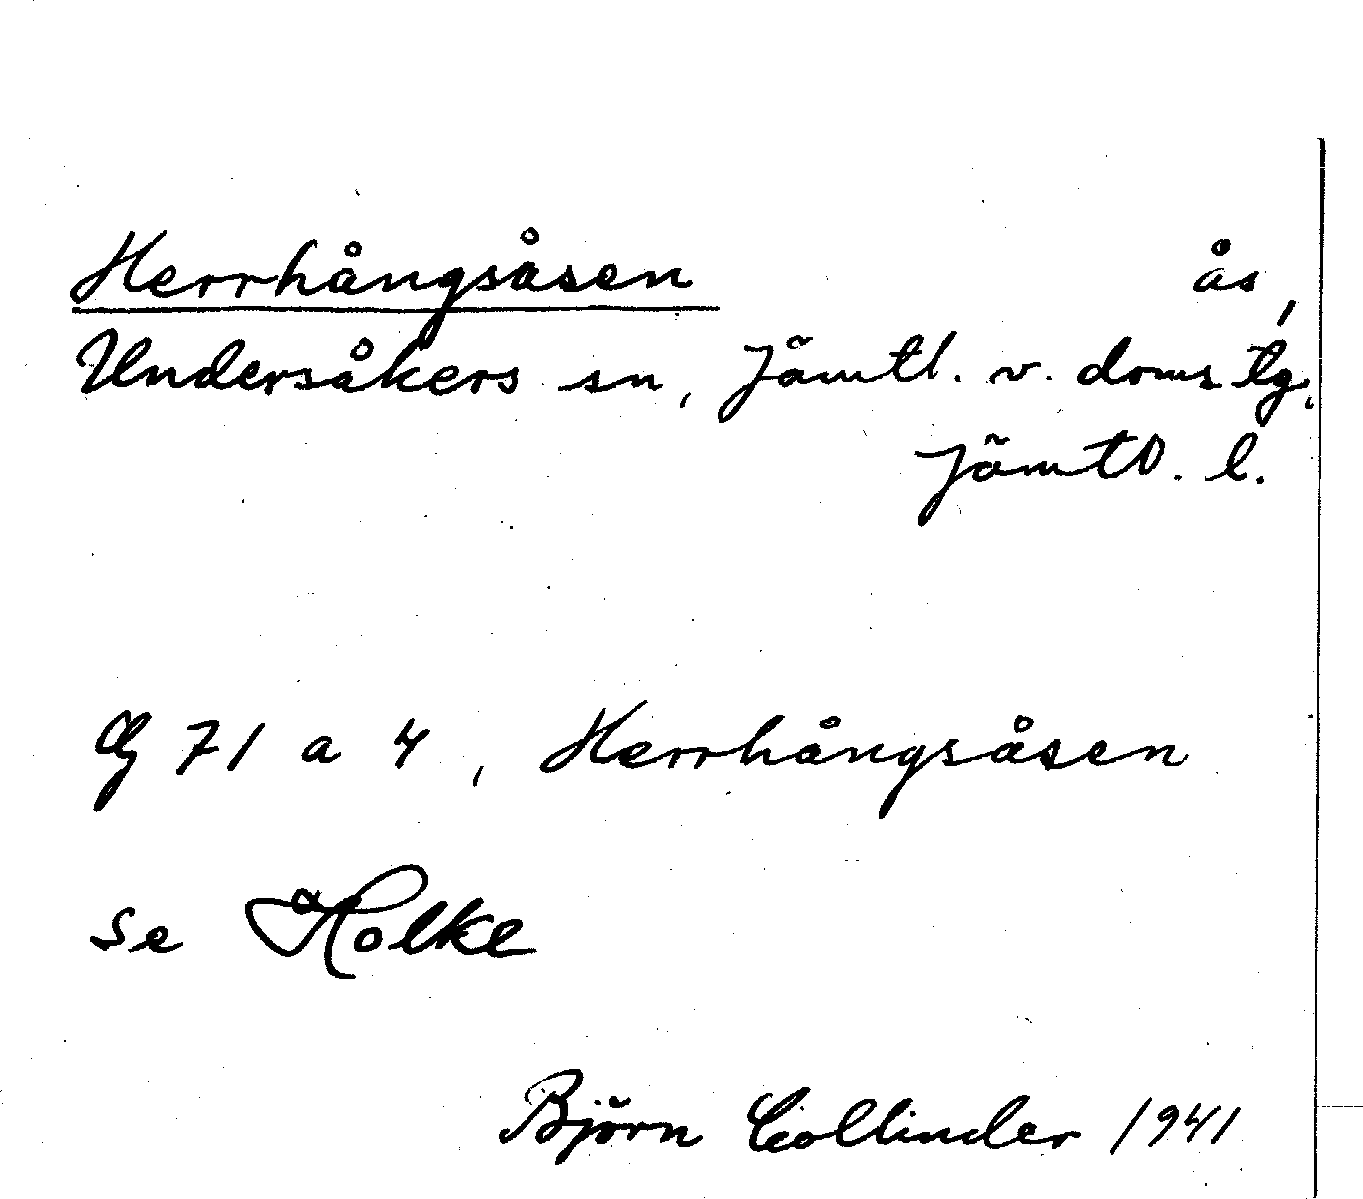 Herrhångsåsen ås,
Undersåkers sn, Jämtl. v. doms tg,
Jämtl. l.
Gg 71 a 4, Herrhångsåsen
se Holke
Björn Collinder 1941